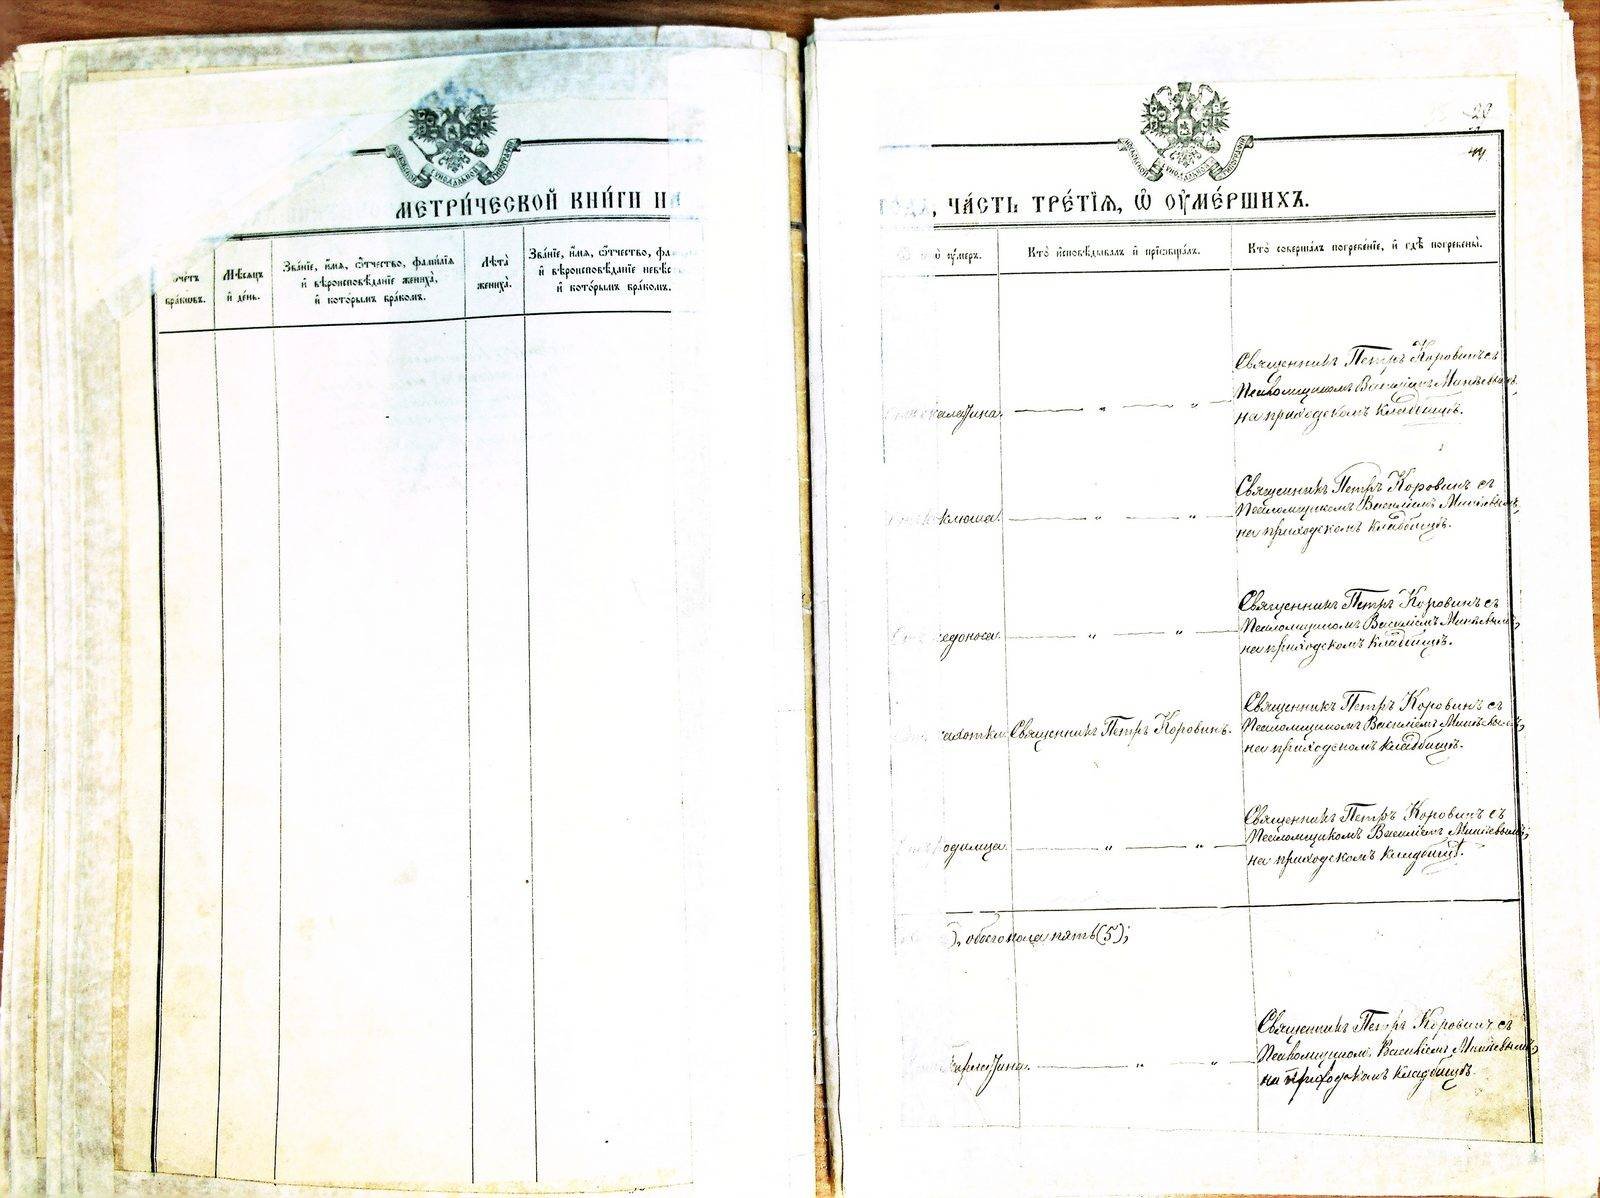 МОСКОВСКОЙ СѴНОДАЛЬНОЙ ТИПОГРАФІИ
МЕТРИ́ЧЕСКОЙ КНИ́ГИ НА
счетъ бра́ковъ.
Мѣ́сяцъ и҆ де́нь.
Зва́ніе, и҆́мя, ѻ҆́тчество, фами́лія и҆ вѣроисповѣ́даніе жениха̀, и҆ кото́рымъ бра́комъ.
Лѣ́та жениха̀.
Зва́ніе, и҆́мя, ѻ҆́тчество, и҆ вѣроисповѣ́даніе невѣ́с и҆ кото́рымъ бра́комъ.
20
44
МОСКОВСКОЙ СѴНОДАЛЬНОЙ ТИПОГРАФІИ
ЧА́СТЬ ТРЕ́ТІѦ, Ѽ ОУ҆МЕ́РШИХЪ.
оу҆́меръ.
Кто̀ и҆сповѣ́дывалъ и҆ пріѡбща́лъ.
Кто̀ соверша́лъ погребе́ніе, и҆ гдѣ̀ погребены̀.
Священникъ Петръ Коровинъ съ
Псаломщикомъ Василіемъ Минѣевымъ,
на приходскомъ кладбищѣ.
Священникъ Петръ Коровинъ съ
Псаломщикомъ Василіемъ Минѣевымъ,
на приходскомъ кладбищѣ.
Священникъ Петръ Коровинъ съ
Псаломщикомъ Василіемъ Минѣевымъ,
на приходскомъ кладбищѣ.
Священникъ Петръ Коровинъ.
Священникъ Петръ Коровинъ съ
Псаломщикомъ Василіемъ Минѣевымъ,
на приходскомъ кладбищѣ.
Священникъ Петръ Коровинъ съ
Псаломщикомъ Василіемъ Минѣевымъ,
на приходскомъ кладбищѣ.
обоего пола пять (5);
Священникъ Петръ Коровинъ съ
Псаломщикомъ Василіемъ Минѣевымъ,
на приходскомъ кладбищѣ.